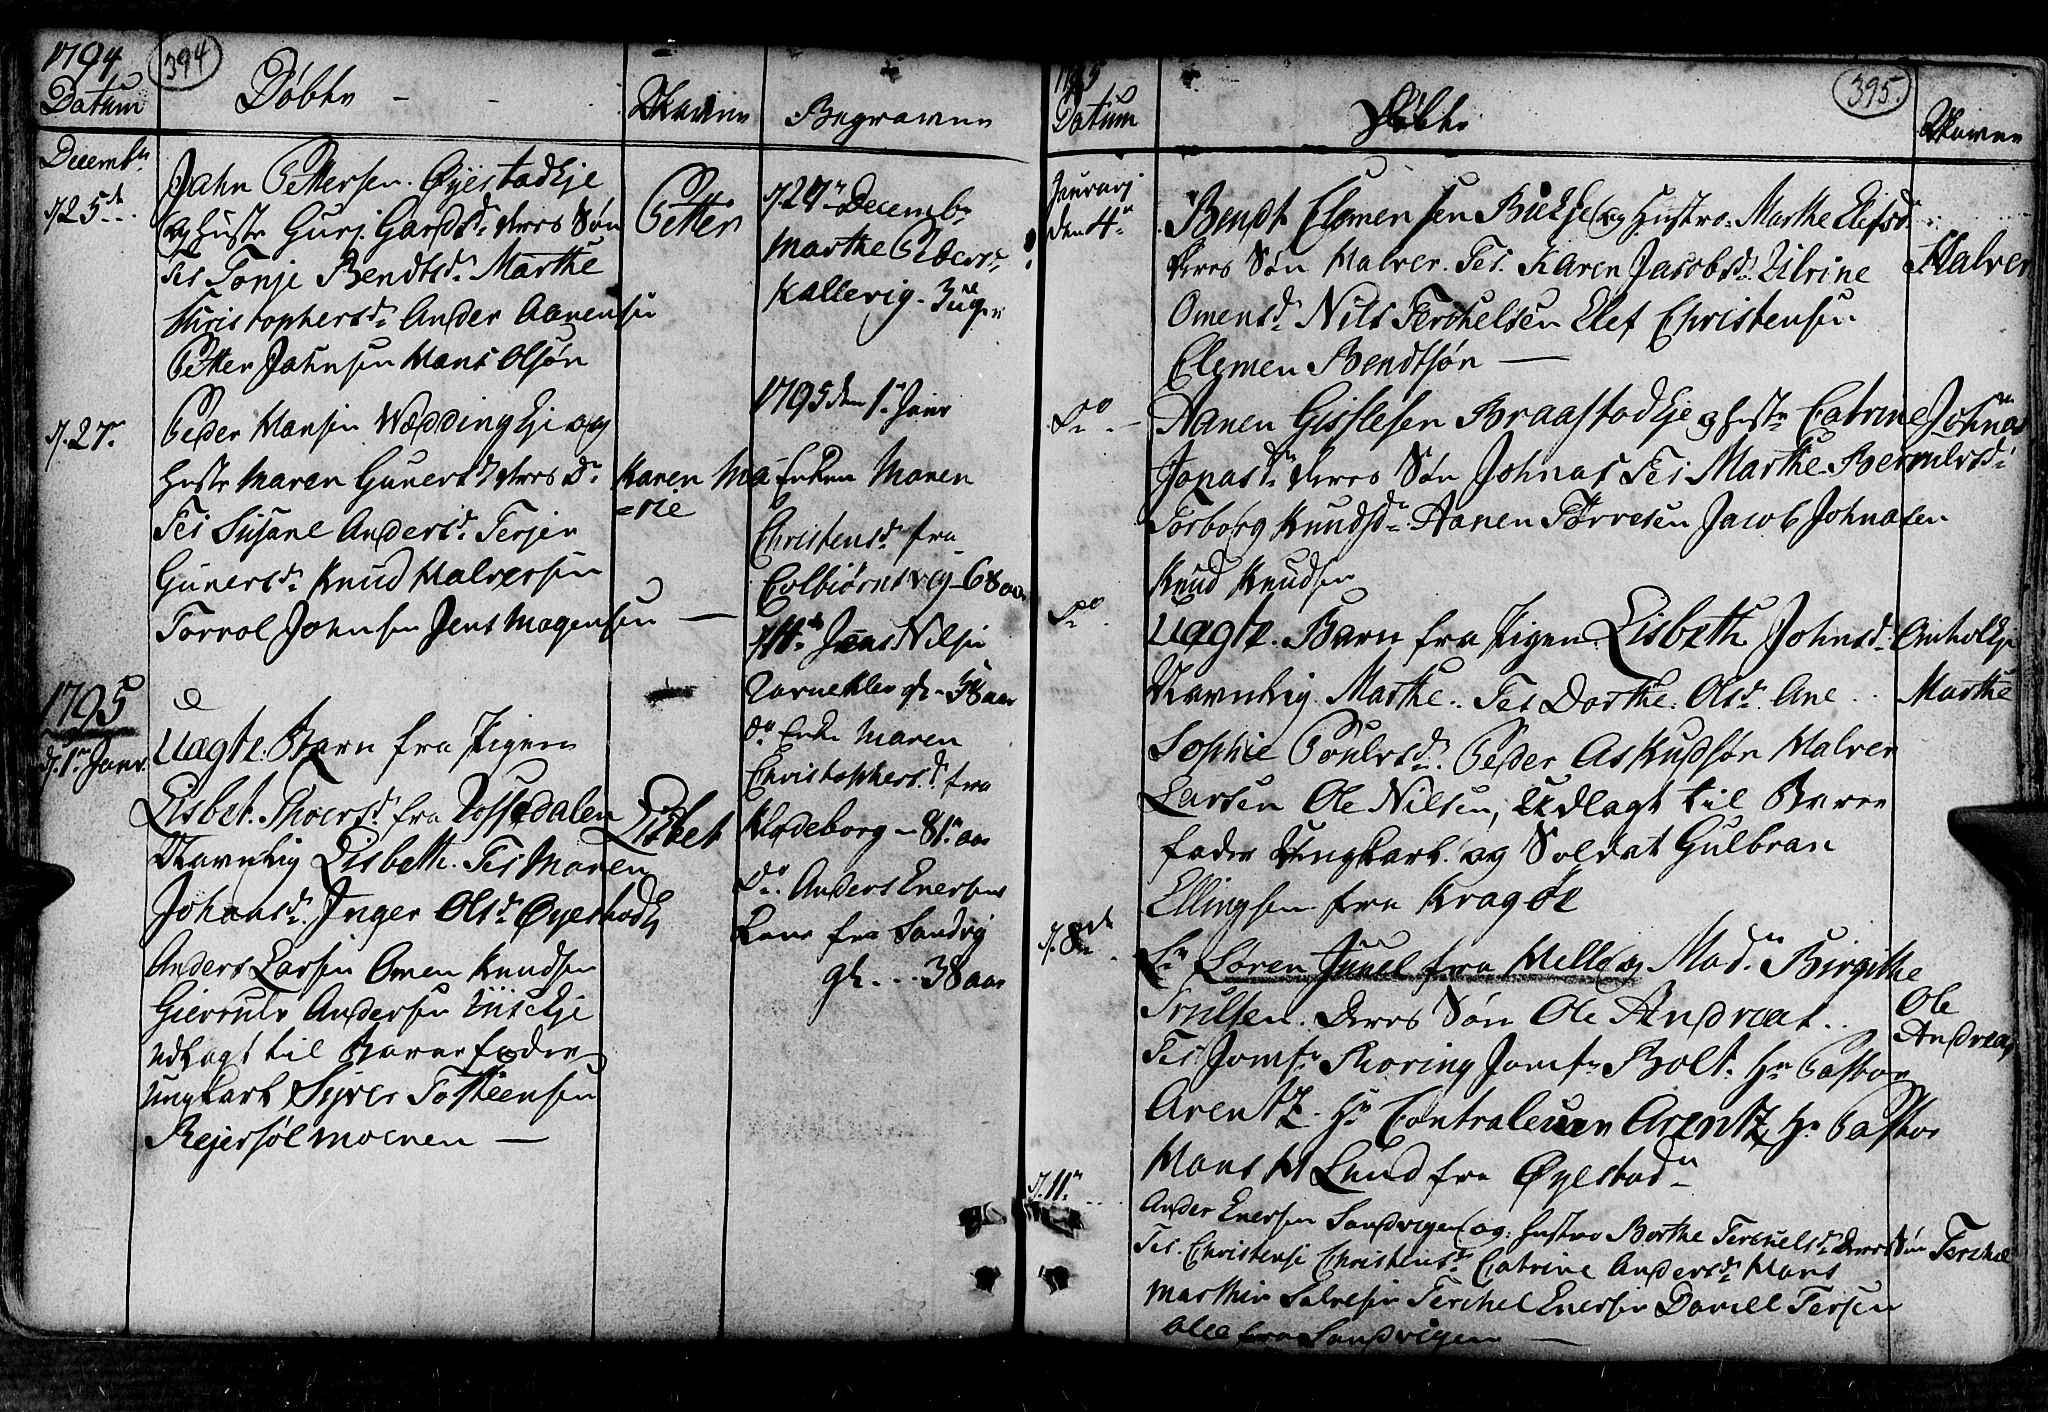 1794
394
Datum
Døbte
Navne
Begravne
Decembr
d. 25de
Jahn Pettersen Øyestadeje
og Hustr Guri Gardsdr deres Søn
Tes Tonje Bendtsdr Marthe
Christophersdr Ander Aanensen
Petter Jahnsen Hans Olsøn
Petter
d. 27n
Peder Hansen Wæddingeje og
Hustr Maren Gunersdr deres Dr
Tes Susane Andersdr Terjer
Gunersdr Knud Halversen
Torrol Johnsen Jens Mogensen
Karen Ma
=rie
1795
d. 1n Janr.
Uægte Barn fra Pigen
Lisbet Thoersdr fra Rossedalen
Navnlig Lisbeth Tes Maren
Johansdr Inger Olsdr Øyestadej
Anders Larsen Omen Knudsen
Gierrulv Andersen
udlagt til Barnefader
ungkarl Syver Tosteensen
Rejersølmoenen
Lisbet
d. 27n Decembr
Marthe Pedersdr
Kallevig - 3 uger
1795 den 1n Janr
Enken Maren
Christensdr fra
Colbiørnsvig - 68 aar
Jens Nilsen
gl - 58 aar
do Enke Maren
Christophersdr fra
Klødeborg - 81 aar
Do Anders Enersen
fra Sandvig
gl ... 38 aar
1795
395
Datum
Døbte
Navne
Januarj
den 4n
Bendt Clemensen Bieje og Hustro Marthe Elefsdr
deres Søn Halver. Tes. Karen Jacobsdr Ulrine
Omensdr Nils Terchelsen Elef Christensen
Clemen Bendtsøn
Halver
Do
Aanen Gisslesen Braastadeje og Hustr Catrine
Jonasdr deres Søn Johnas Tes Marthe Berntersdr
Torborg Knudsdr Aanen Tørresen Jacob Johnasen
Knud Knudsen
Johnas
Do
Uægte Barn fra Pigen Lisbeth Johnsdr Anholteje
Navnlig Marthe. Tes Dorthe Olsdr Ane
Sophie Poulersdr Peder Askudsøn Halver
Larsen Ole Nilsen, Udlagt til Barne
fader Ungkarl og Soldat Gulbran
Ellingsen fra Kragøe
Marthe
d. 8de
Sr Søren Juuel fra Helle og Madm Birgithe
Trulsen Deres Søn Ole Andreas
Tes Jomfr Thoring Jomfr Bolt Hr Pastor
Arentz Hr Contraleuren Arentz, Hr Pastor
Hans H Lund fra Øyestad
Ole
Andreas
d. 11n
Ander Enersen Sandvigen og Hustro Berthe Terchelsdr deres Søn
Tes. Christense Christensdr Catrine Andersdr Hans
Marthin Salvesen Terchel Enersen Daniel Tersen
alle fra Sandvigen
Terchel